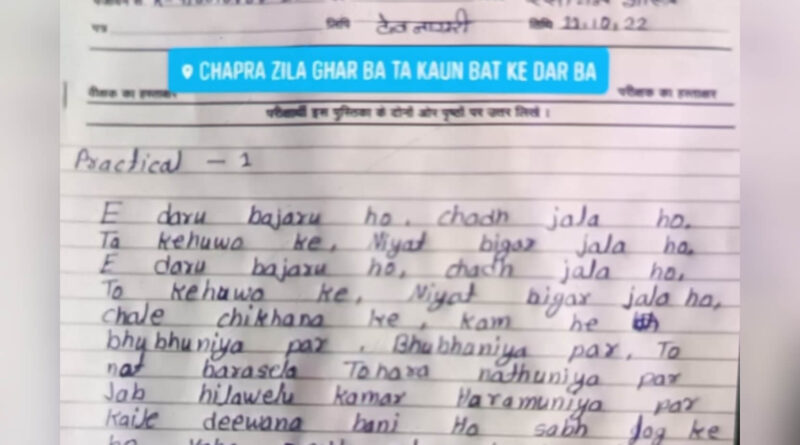 पत्र लिपि देवनागरी तिथि 11.10.22
CHAPRA ZILA GHAR BA TA KAUN BAT KE DAR BA
वीक्षक का हस्ताक्षर परीक्षक का हस्ताक्षर
परीक्षार्थी इस पुस्तिका के दोनों ओर पृष्ठों पर उत्तर लिखें ।
Practical - 1
E daru bajaru ho, chadh jala ho.
Ta kehuwo ke, Niyat bigar jala ho.
E daru bajaru ho, chadh jala ho,
To kehuwo ke, Niyat bigar jala ho,
chale chikhana ke, kam he
bhubhuniya par, Bhubhaniya par, To
nat barasela Tohara nathuniya par
Jab hilawelu kamar Haramuniya par
Kaile deewana bani Ho sabh log ke